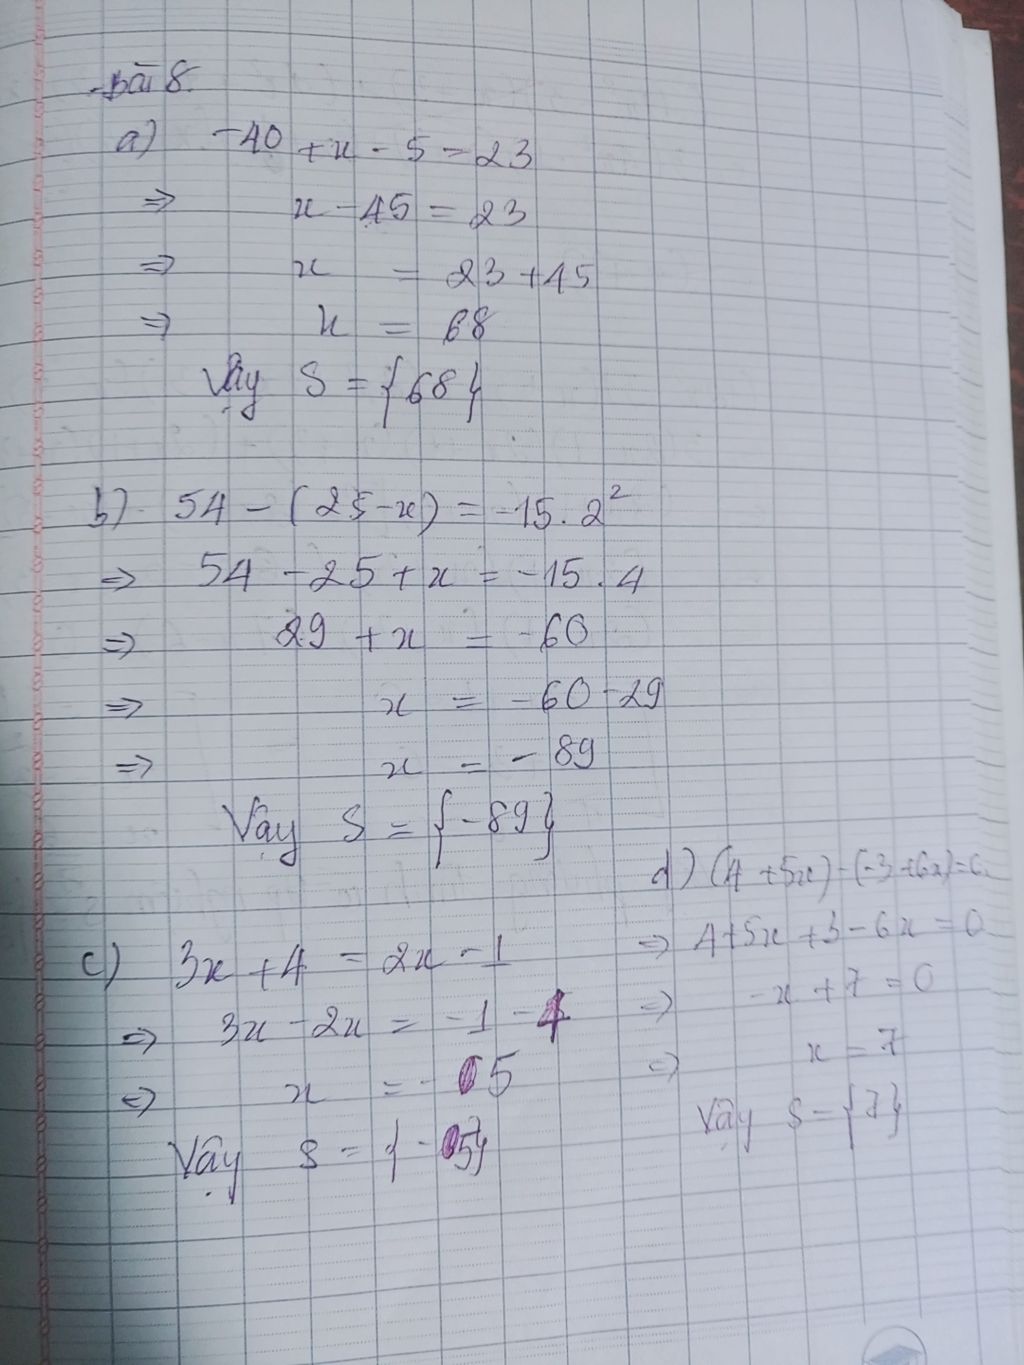 Bài 8.
a) -40 + x - 5 = 23
=> x - 45 = 23
=> x = 23 + 45
=> x = 68
Vậy S = {68}
b) 54 - (25 - x) = -15.2²
=> 54 - 25 + x = -15.4
=> 29 + x = -60
=> x = -60 - 29
=> x = -89
Vậy S = {-89}
c) 3x + 4 = 2x - 1
=> 3x - 2x = -1 - 4
=> x = -5
Vậy S = {-5}
d) (4 + 5x) - (-3 + 6x) =
=> 4 + 5x + 3 - 6x = 0
=> -x + 7 = 0
=> x = 7
Vậy S = {7}